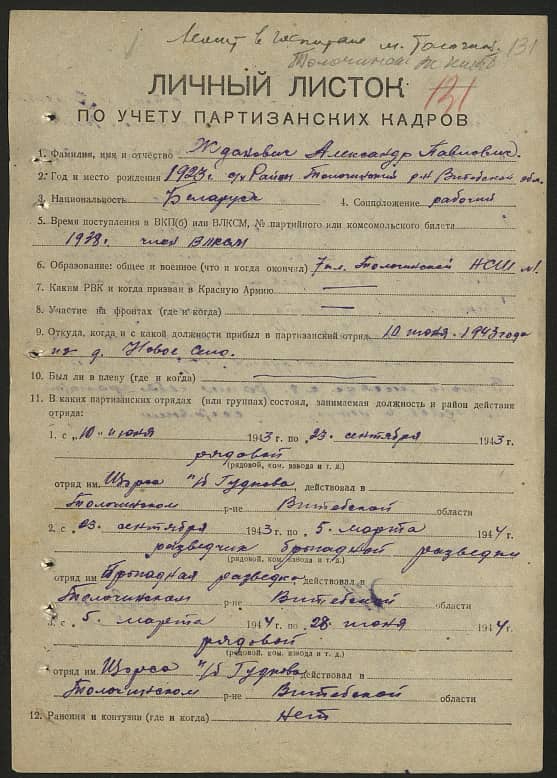 Лежит в госпитале м. Толочин. 131
Толочинский
131
ЛИЧНЫЙ ЛИСТОК
ПО УЧЕТУ ПАРТИЗАНСКИХ КАДРОВ
1. Фамилия, имя и отчество Жданович Александр Павлович.
2. Год и место рождения 1923 г. Райцы Толочинский р-н Витебской обл.
3. Национальность Беларус 4. Соцположение рабочий
5. Время поступления в ВКП(б) или ВЛКСМ, № партийного или комсомольского билета
1938 г. член ВЛКСМ
6. Образование: общее и военное (что и когда окончил) 7 кл. Толочинской НСШ №1
7. Каким РВК и когда призван в Красную Армию —
8. Участие на фронтах (где и когда) —
9. Откуда, когда и с какой должности прибыл в партизанский отряд 10 июня 1943 года
из д. Новое Село.
10. Был ли в плену (где и когда) —
11. В каких партизанских отрядах (или группах) состоял, занимаемая должность и район действия
отряда:
1. с „10" июня 1943 г. по 23 сентября 1943 г.
рядовой
(рядовой, ком. взвода и т. д.)
отряд им. Щорса п/б Гудкова, действовал в
Толочинском р-не Витебской области
2. с 23 сентября 1943 г. по 5 марта 1944 г.
разведчик бригадной разведки
(рядовой, ком. взвода и т. д.)
отряд им Бригадная разведка действовал в
Толочинском р-не Витебской области
3. с 5 марта 1944 г. по 28 июня 1944 г.
рядовой
(рядовой, ком. взвода и т. д.)
отряд им. Щорса п/б Гудкова действовал в
Толочинском р-не Витебской области
12. Ранения и контузии (где и когда) нет